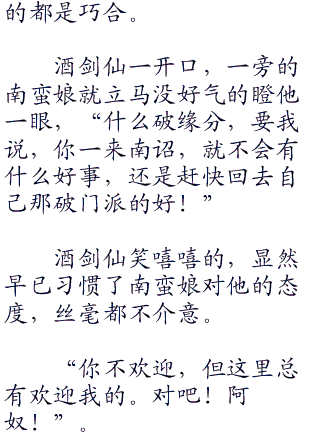 的都是巧合。
酒剑仙一开口，一旁的
南蛮娘就立马没好气的瞪他
一眼，“什么破缘分，要我
说，你一来南诏，就不会有
什么好事，还是赶快回去自
己那破门派的好！”
酒剑仙笑嘻嘻的，显然
早已习惯了南蛮娘对他的态
度，丝毫都不介意。
“你不欢迎，但这里总
有欢迎我的。对吧！阿
奴！”。